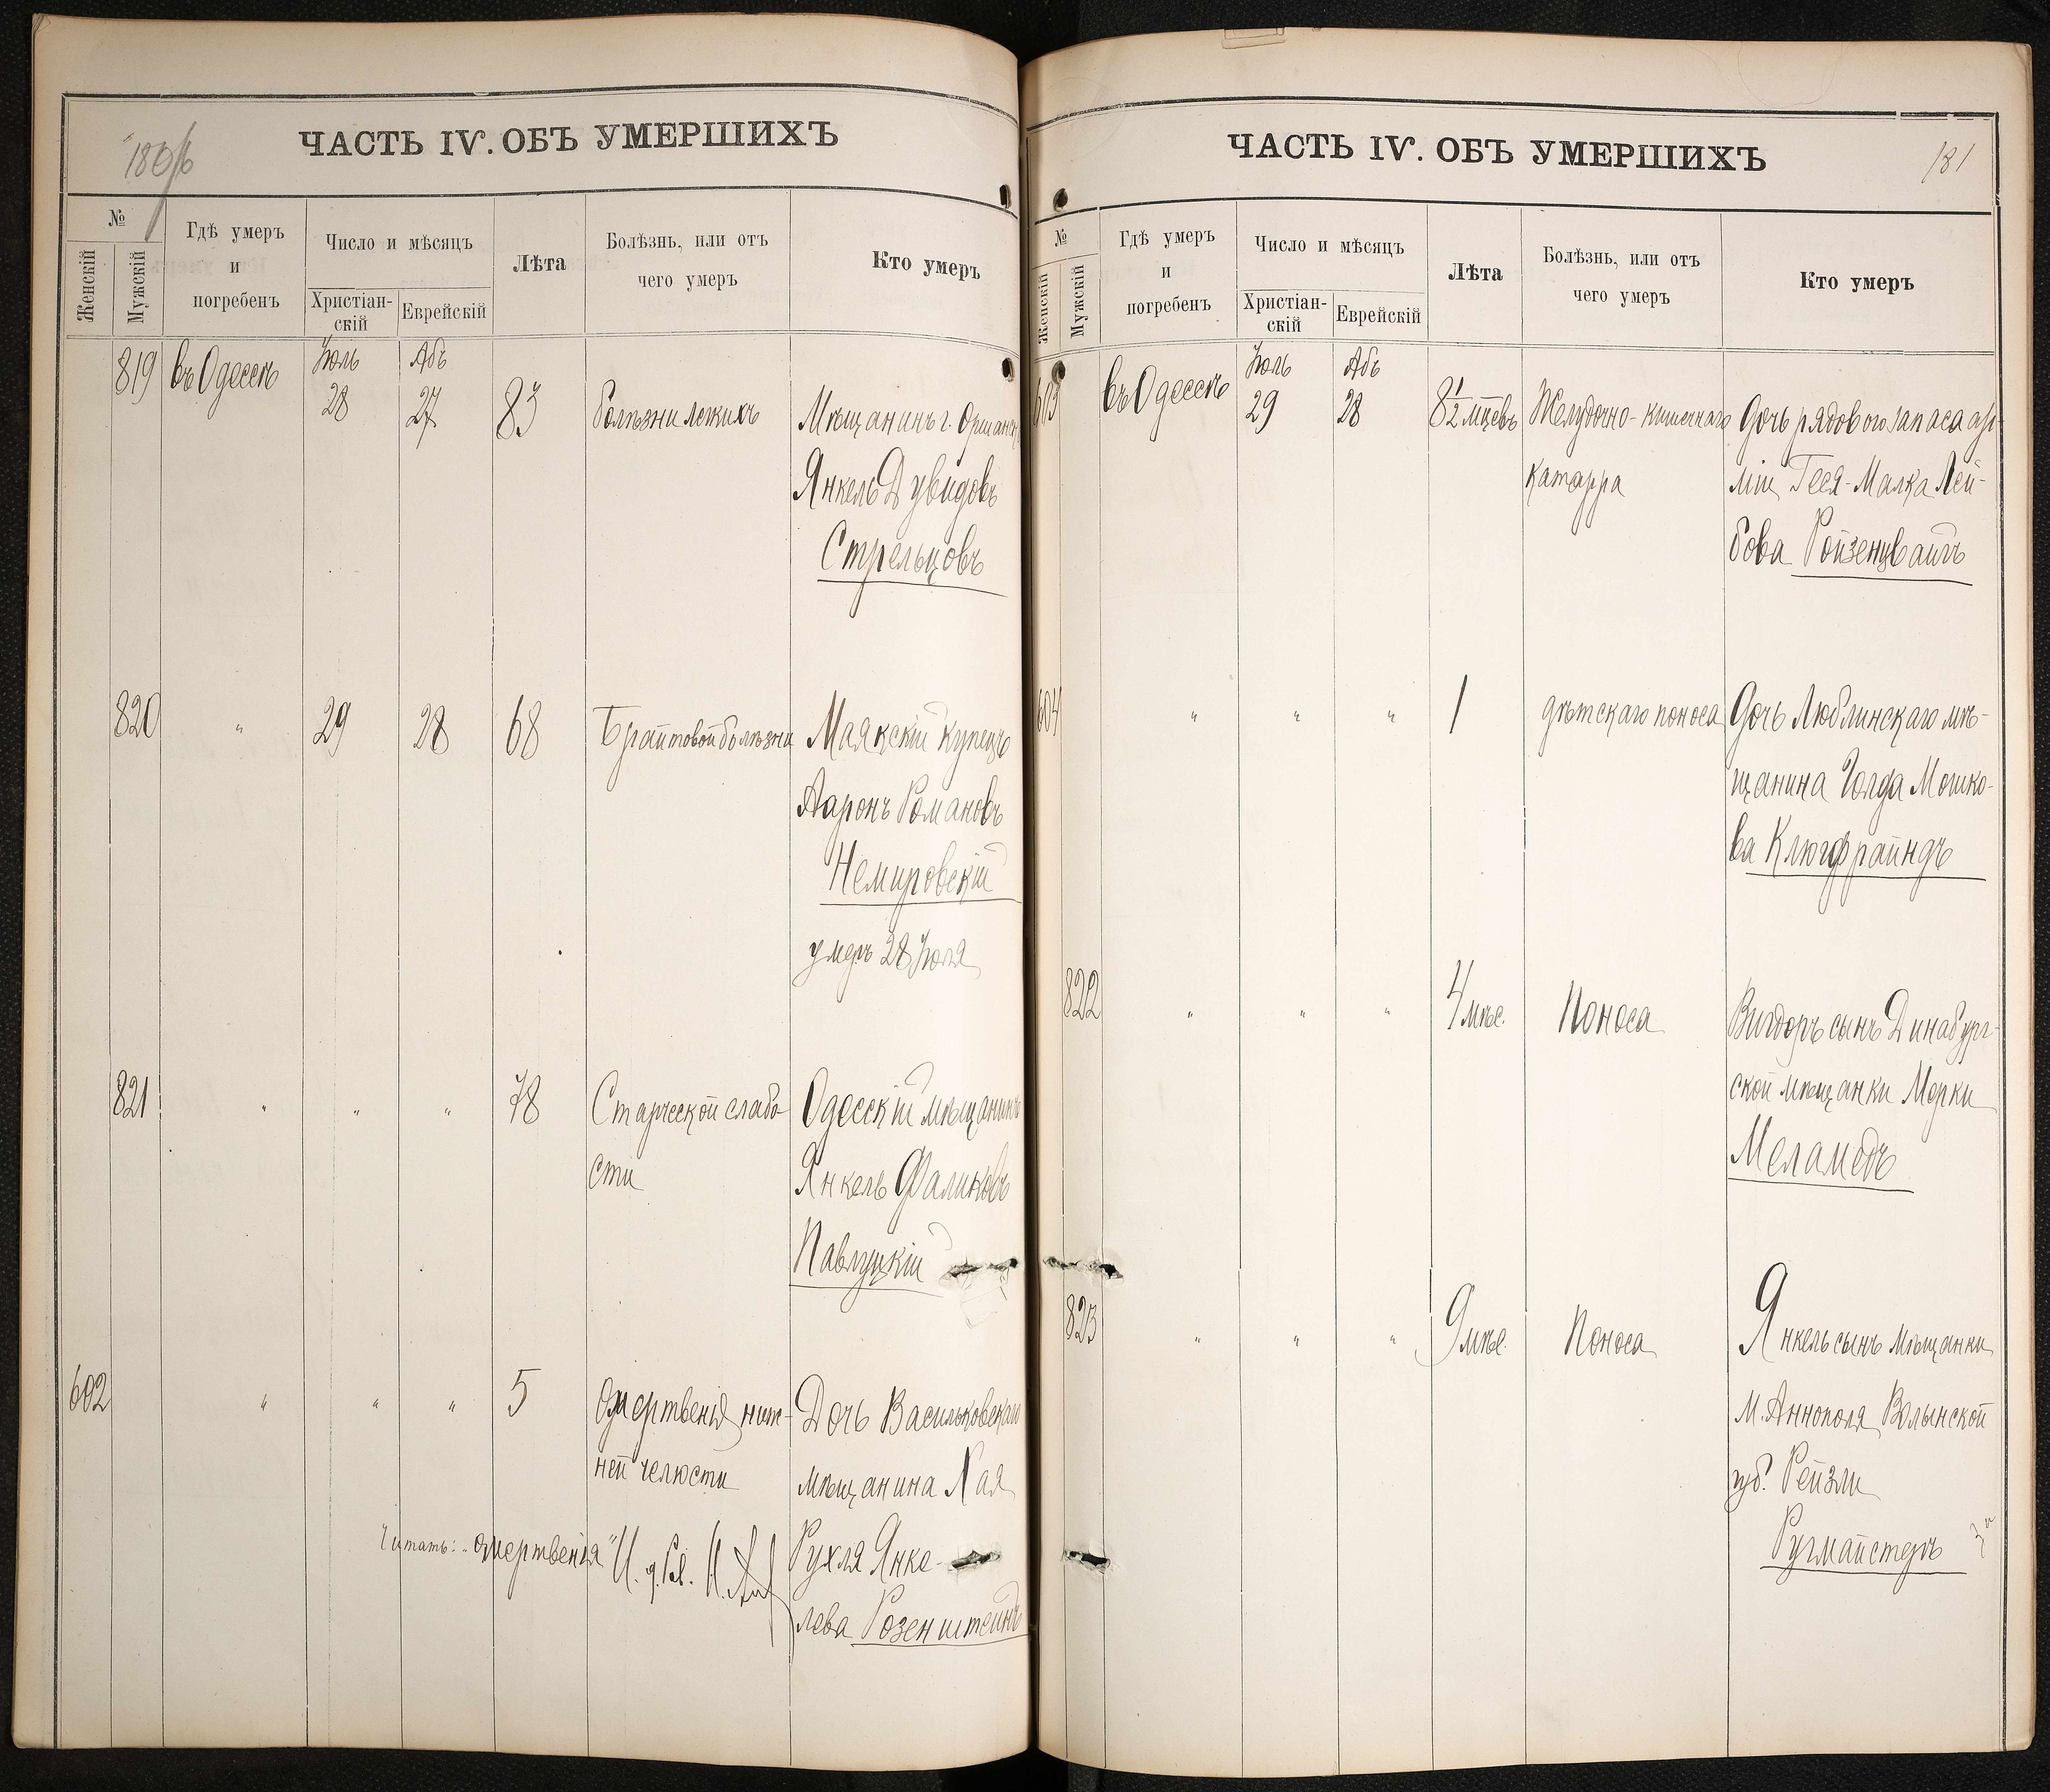 ЧАСТЬ IV. ОБЪ УМЕРШИХЪ
№
Женскій
Мужскій
Гдѣ умеръ
и
погребенъ
Число и мѣсяцъ
Христіан-
скій
Еврейскій
Лѣта
Болѣзнь, или отъ
чего умеръ
Кто умеръ
819 въ Одессѣ Іюль 28 Абъ 27 83 болѣзни легкихъ Мѣщанинъ г.
Янкель Дувидовъ
Стрельцовъ
820 " 29 28 68 Брайтовой болѣзни Маякскій купецъ
Ааронъ Романовъ
Немировскій
умеръ 28 Іюля
821 " " " 78 Старческой слабо- Одесскій мѣщанинъ
сти Янкель Фаликовъ
Павлуцкій
602 " " " 5 Омертвенія ниж- Дочь Васильковскаго
ней челюсти мѣщанина Хая
Рухля Янке-
лева Розенштейнъ
Читать: "омертвенія"
ЧАСТЬ IV. ОБЪ УМЕРШИХЪ
181
№
Женскій
Мужскій
Гдѣ умеръ
и
погребенъ
Число и мѣсяцъ
Христіан-
скій
Еврейскій
Лѣта
Болѣзнь, или отъ
чего умеръ
Кто умеръ
603 въ Одессѣ Іюль 29 Абъ 28 8½ мѣсцевъ Желудочно-кишечнаго Дочь рядового запаса ар-
катарра міи Гееся-Малка Лей-
бова Ройзенцвайгъ
604 " " " 1 дѣтскаго поноса Дочь Люблинскаго мѣ-
щанина Голда Мошко-
ва Клюгфрайндъ
822 " " " 4 мѣс. Поноса Вигдоръ сынъ Динабург-
ской мѣщанки Мерки
Меламедъ
823 " " " 9 мѣс. Поноса Янкель сынъ мѣщанки
м. Аннополя Волынской
губ. Рейзли
Ругмайстеръ